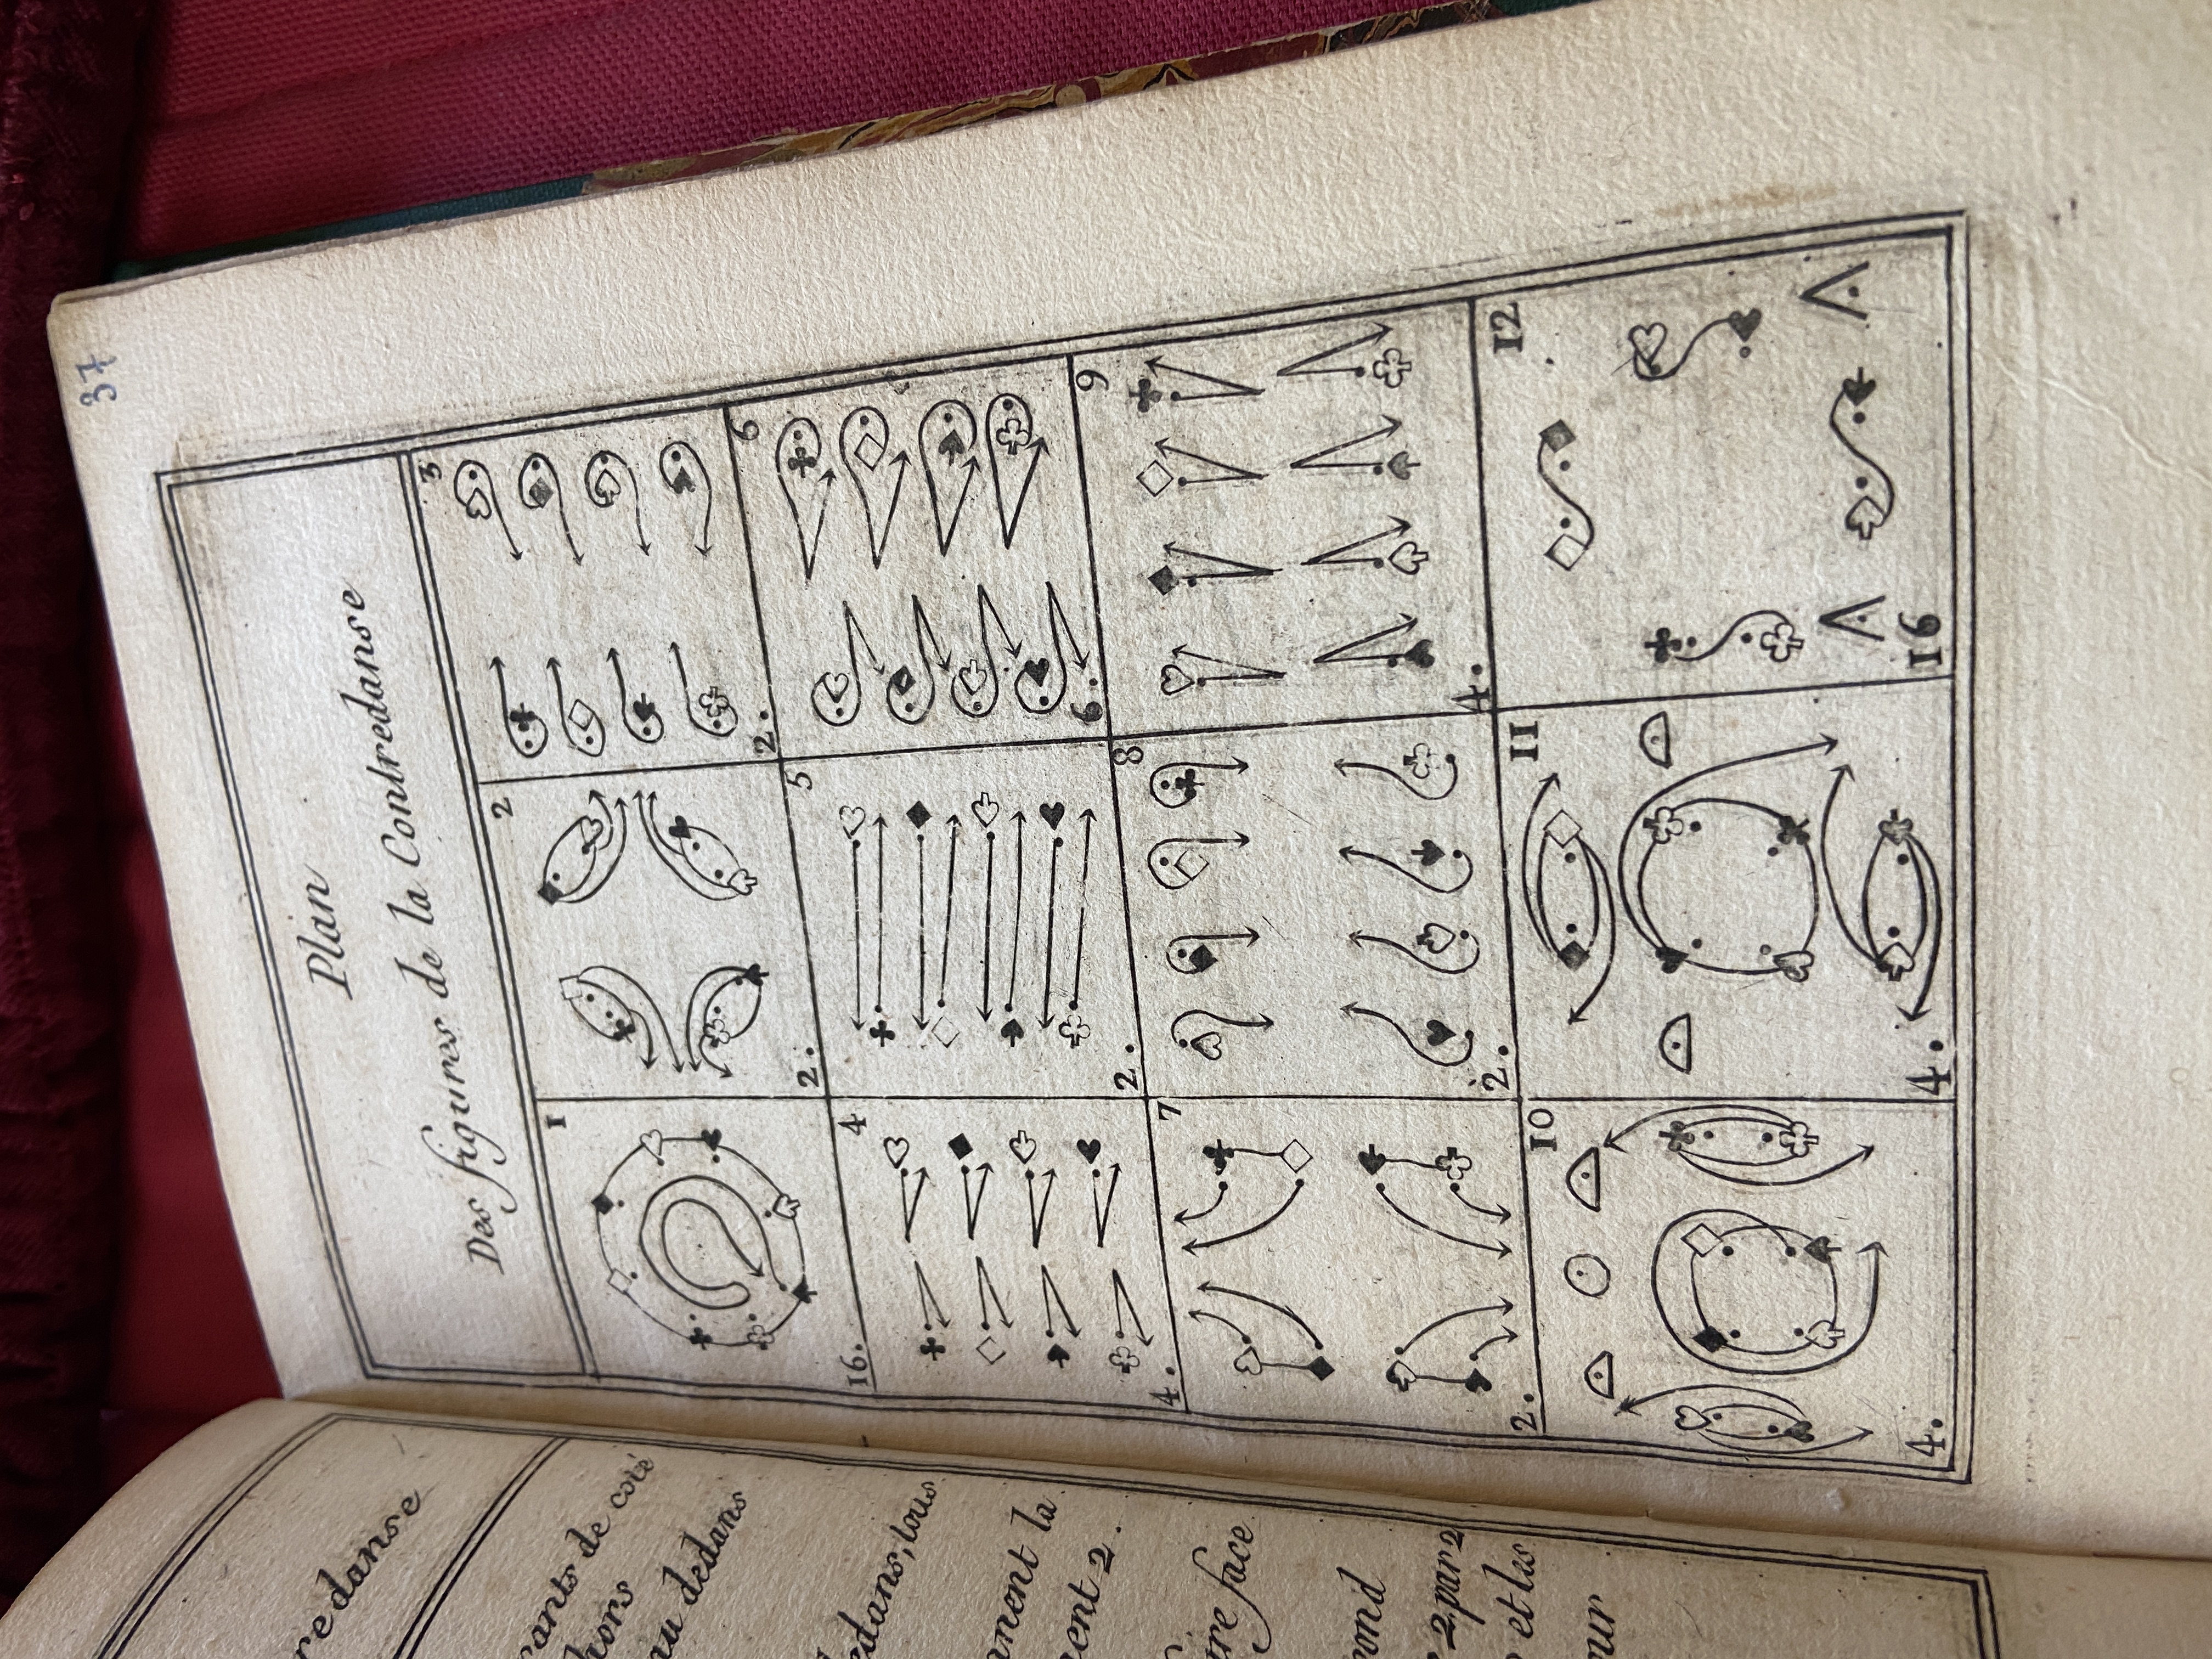 37
Plan
Des figures de la Contredanse
1
16.
2
2.
3
2.
4
4.
5
2.
6
6.
7
2.
8
2.
9
4.
10
4.
11
4.
12
16
redanse
de coté
hors
au dedans
edans, tous
nent la
ent 2.
face
ond
2 par 2
et les